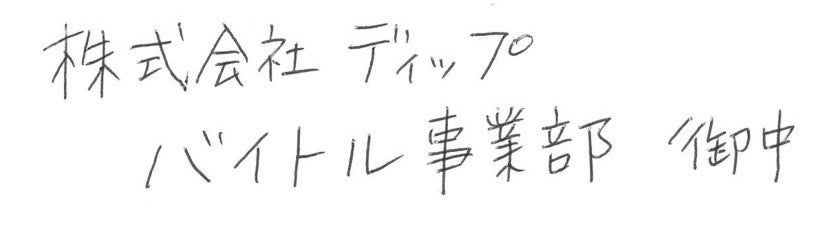 株式会社 ディップ
バイトル事業部 御中